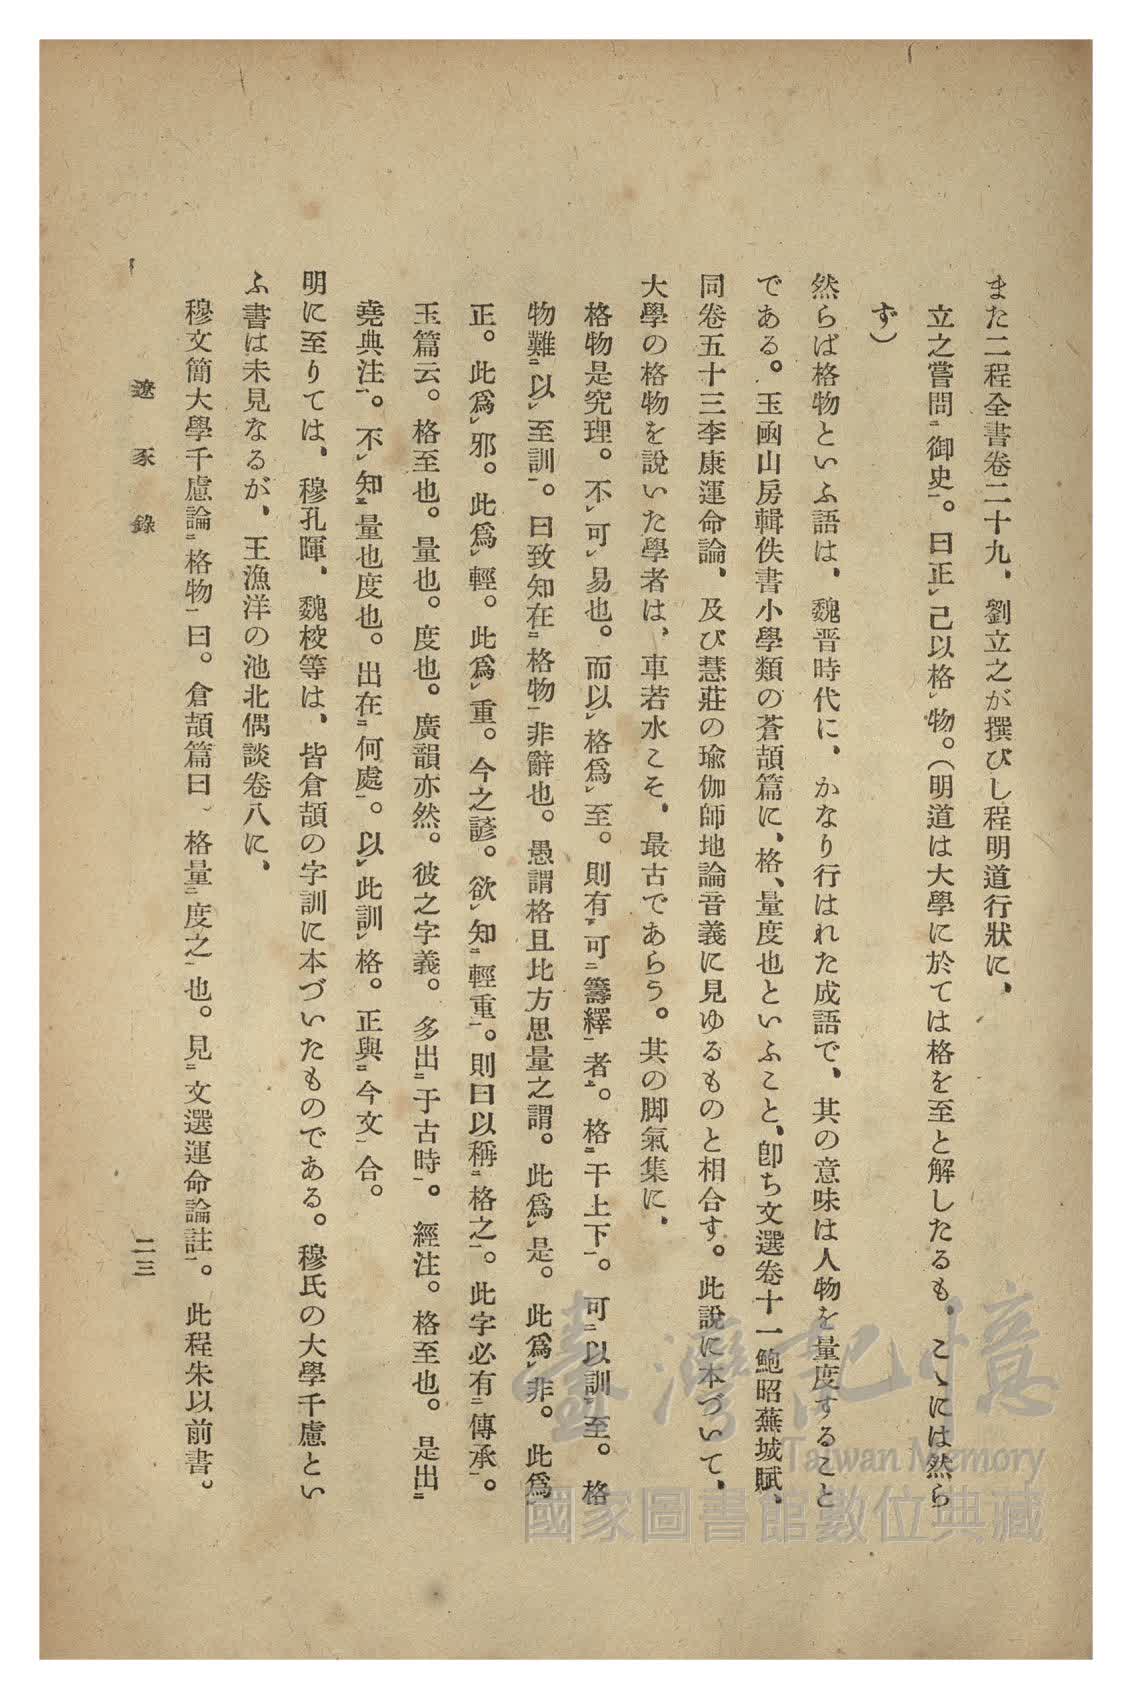 また二程全書卷二十九、劉立之が撰びし程明道行狀に、
立之嘗問㆓御史㆒。曰正㆑己以格㆑物。（明道は大學に於ては格を至と解したるも、こゝには然ら
ず）
然らば格物といふ語は、魏晋時代に、かなり行はれた成語で、其の意味は人物を量度すること
である。玉函山房輯佚書小學類の蒼頡篇に、格、量度也といふこと、卽ち文選卷十一鮑昭蕪城賦、
同卷五十三李康運命論、及び慧莊の瑜伽師地論音義に見ゆるものと相合す。此說に本づいて、
大學の格物を說いた學者は、車若水こそ、最古であらう。其の脚氣集に、
格物是究理。不㆑可㆑易也。而以㆑格爲㆑至。則有㆘可㆓籌繹㆒者㆖。格㆓于上下㆒。可㆓以訓㆑至。格
物難㆓以㆑至訓㆒。曰致知在㆓格物㆒非辭也。愚謂格且比方思量之謂。此爲㆑是。此爲㆑非。此爲㆑
正。此爲㆑邪。此爲㆑輕。此爲㆑重。今之諺。欲㆑知㆓輕重㆒。則曰以稱㆓格之㆒。此字必有㆓傳承㆒。
玉篇云。格至也。量也。度也。廣韻亦然。彼之字義。多出㆓于古時㆒。經注。格至也。是出㆓
堯典注㆒。不㆑知㆘量也度也。出在㆓何處㆒。以㆑此訓㆑格。正與㆓今文㆒合。
明に至りては、穆孔暉、魏校等は、皆倉頡の字訓に本づいたものである。穆氏の大學千慮とい
ふ書は未見なるが、王漁洋の池北偶談卷八に、
穆文簡大學千慮論㆓格物㆒曰。倉頡篇曰、格量㆓度之㆒也。見㆓文選運命論註㆒。此程朱以前書。
遼豕錄
二三
臺灣記憶
Taiwan Memory
國家圖書館數位典藏